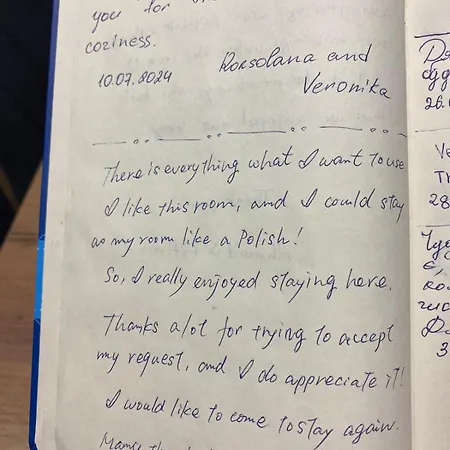 you for
coziness.
10.07.2024
Roksolana and
Veronika
There is everything what I want to use
I like this room, and I could stay
as my room like a Polish!
So, I really enjoyed staying here.
Thanks a lot for trying to accept
my request, and I do appreciate it!
I would like to come to stay again.
28
3